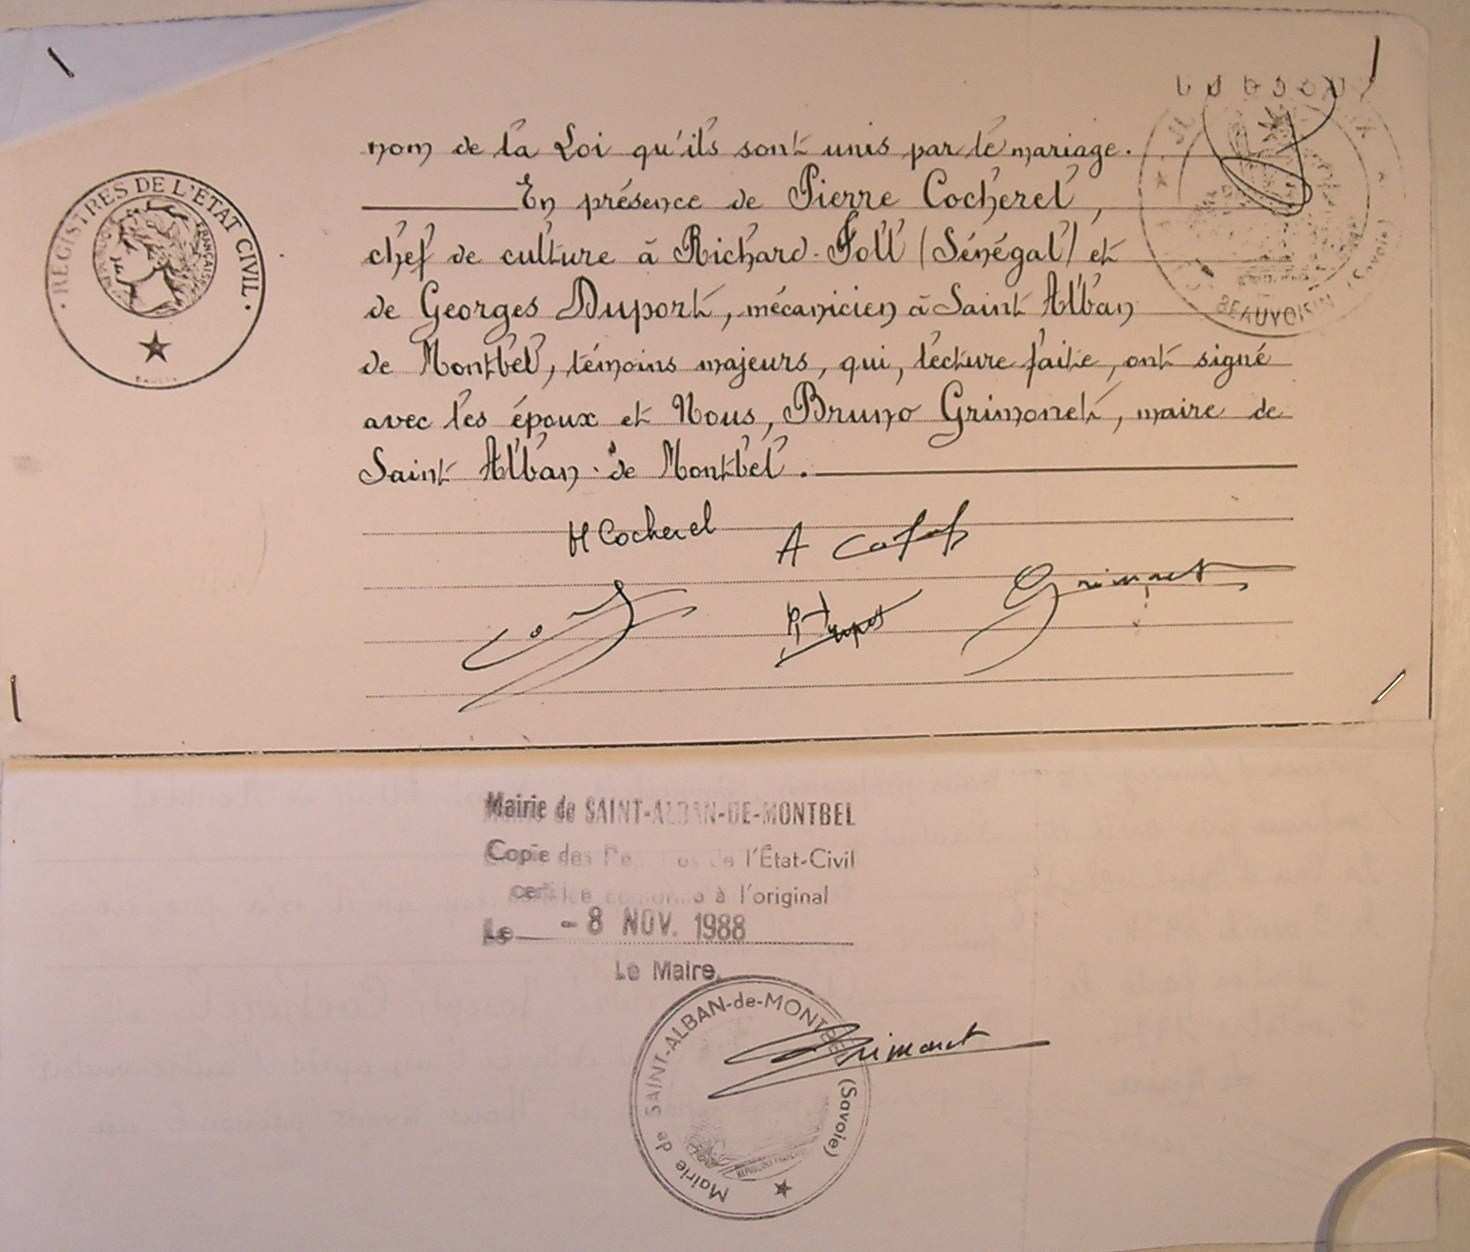 REGISTRES DE L'ÉTAT CIVIL
nom de la Loi qu'ils sont unis par le mariage.
En présence de Pierre Cocherel,
chef de culture à Richard-Toll (Sénégal) et
de Georges Duport, mécanicien à Saint Alban
de Montbel, témoins majeurs, qui, lecture faite, ont signé
avec les époux et Nous, Bruno Grimonet, maire de
Saint Alban-de Montbel.
BEAUVOISIN (Savoie)
H Cocherel
A
Grimonet
Mairie de SAINT-ALBAN-DE-MONTBEL
Copie des de l'État-Civil
conforme à l'original
Le - 8 NOV. 1988
Le Maire,
Mairie de SAINT-ALBAN-de-MONTBEL (Savoie)
Grimonet